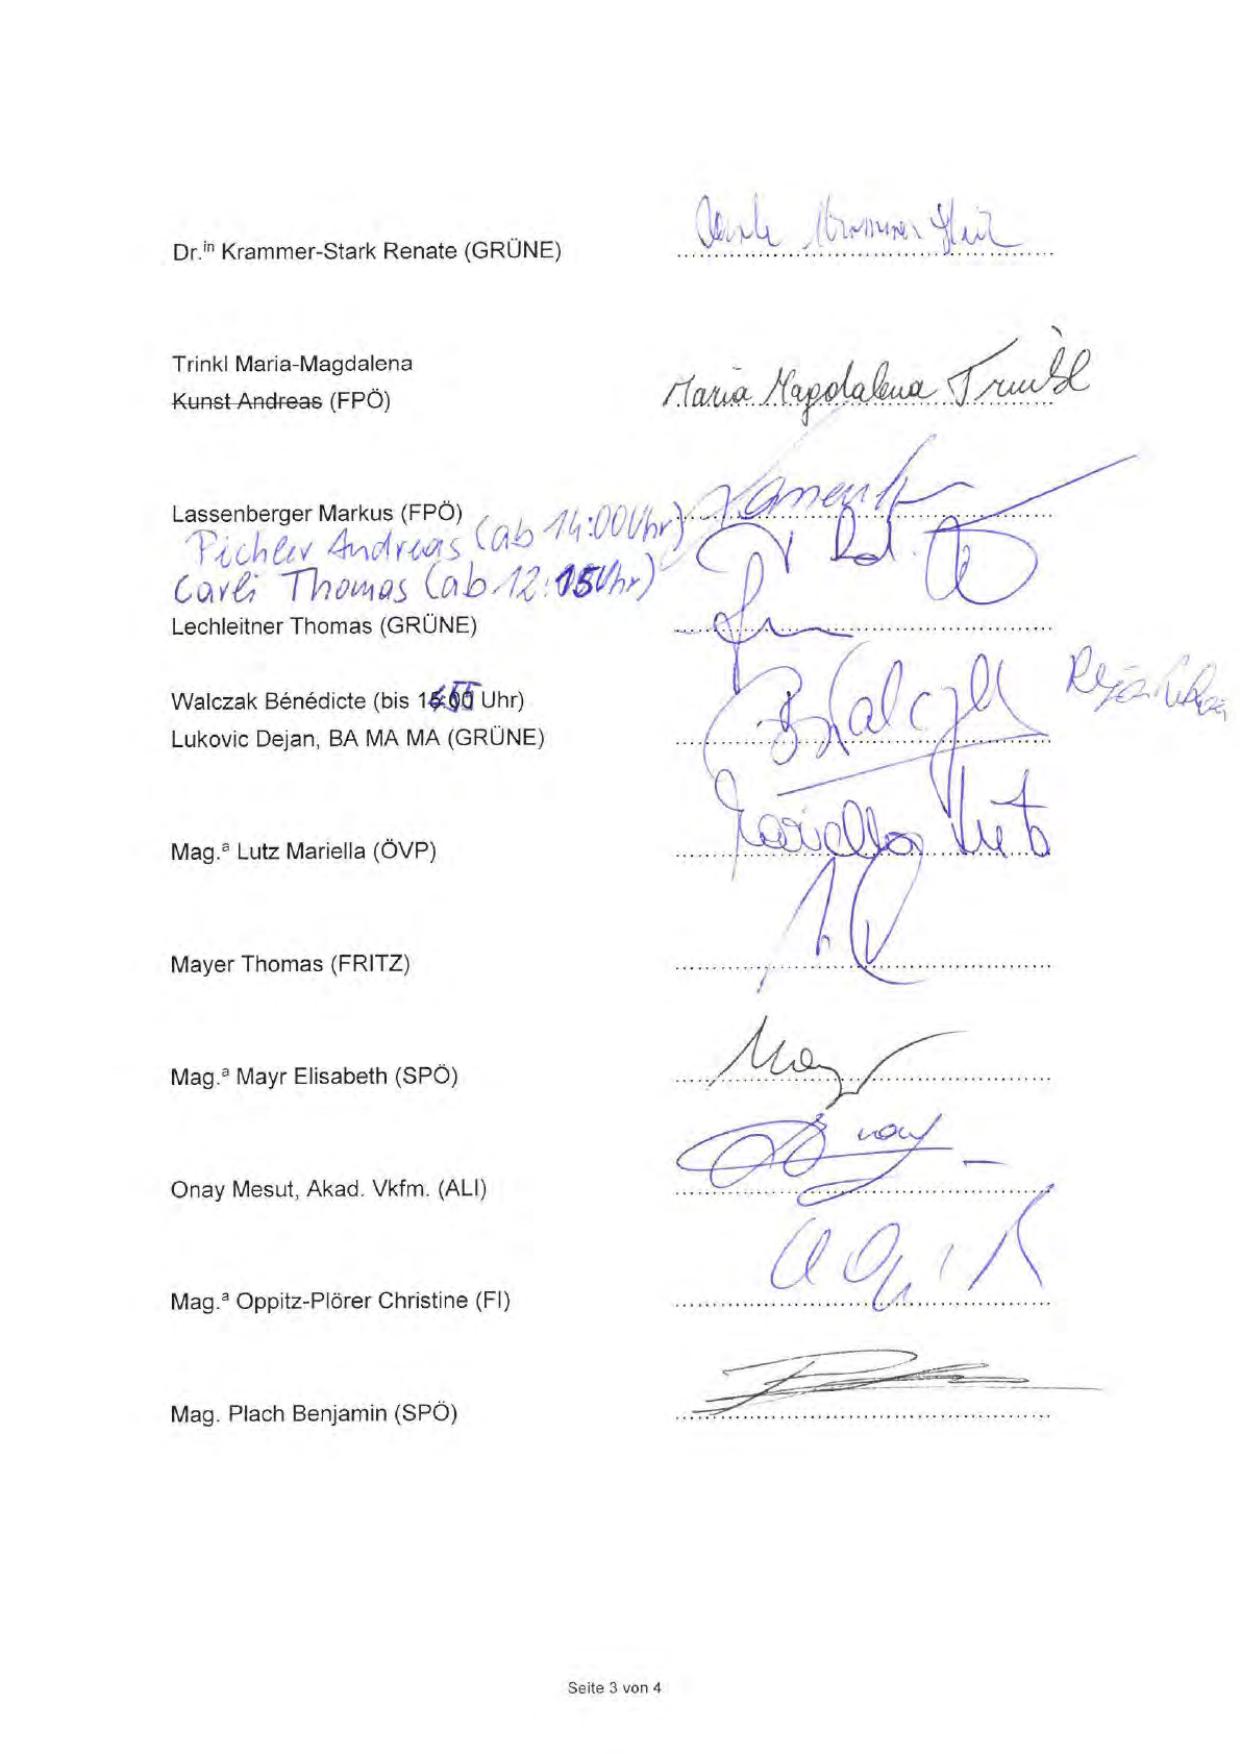 Dr.in Krammer-Stark Renate (GRÜNE)
Trinkl Maria-Magdalena
Kunst Andreas (FPÖ)
Maria Magdalena Trinkl
Lassenberger Markus (FPÖ)
Pichler Andreas (ab 14:00 Uhr)
Carli Thomas (ab 12:15 Uhr)
Lechleitner Thomas (GRÜNE)
Walczak Bénédicte (bis Uhr)
BWalczak
Lukovic Dejan, BA MA MA (GRÜNE)
Mag.a Lutz Mariella (ÖVP)
Mariella Lutz
Mayer Thomas (FRITZ)
Mag.a Mayr Elisabeth (SPÖ)
Mayr
Onay Mesut, Akad. Vkfm. (ALI)
Mag.a Oppitz-Plörer Christine (FI)
Mag. Plach Benjamin (SPÖ)
Seite 3 von 4